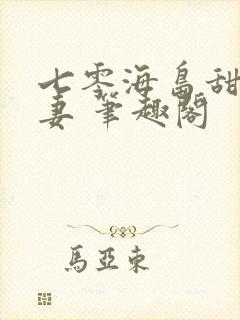 七零海島甜
妻 筆趣閣
馬亞東